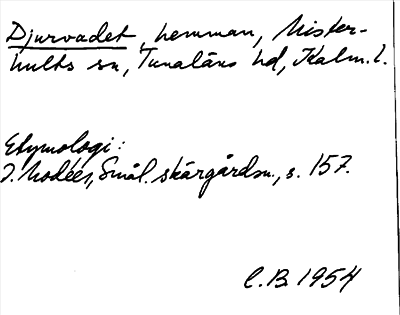 Djurvadet, hemman, Mister-
hults sn, Tunaläns hd, Kalm. l.
Etymologi:
I. Modéer, Smål. skärgårdsn., s. 157.
C. B. 1954